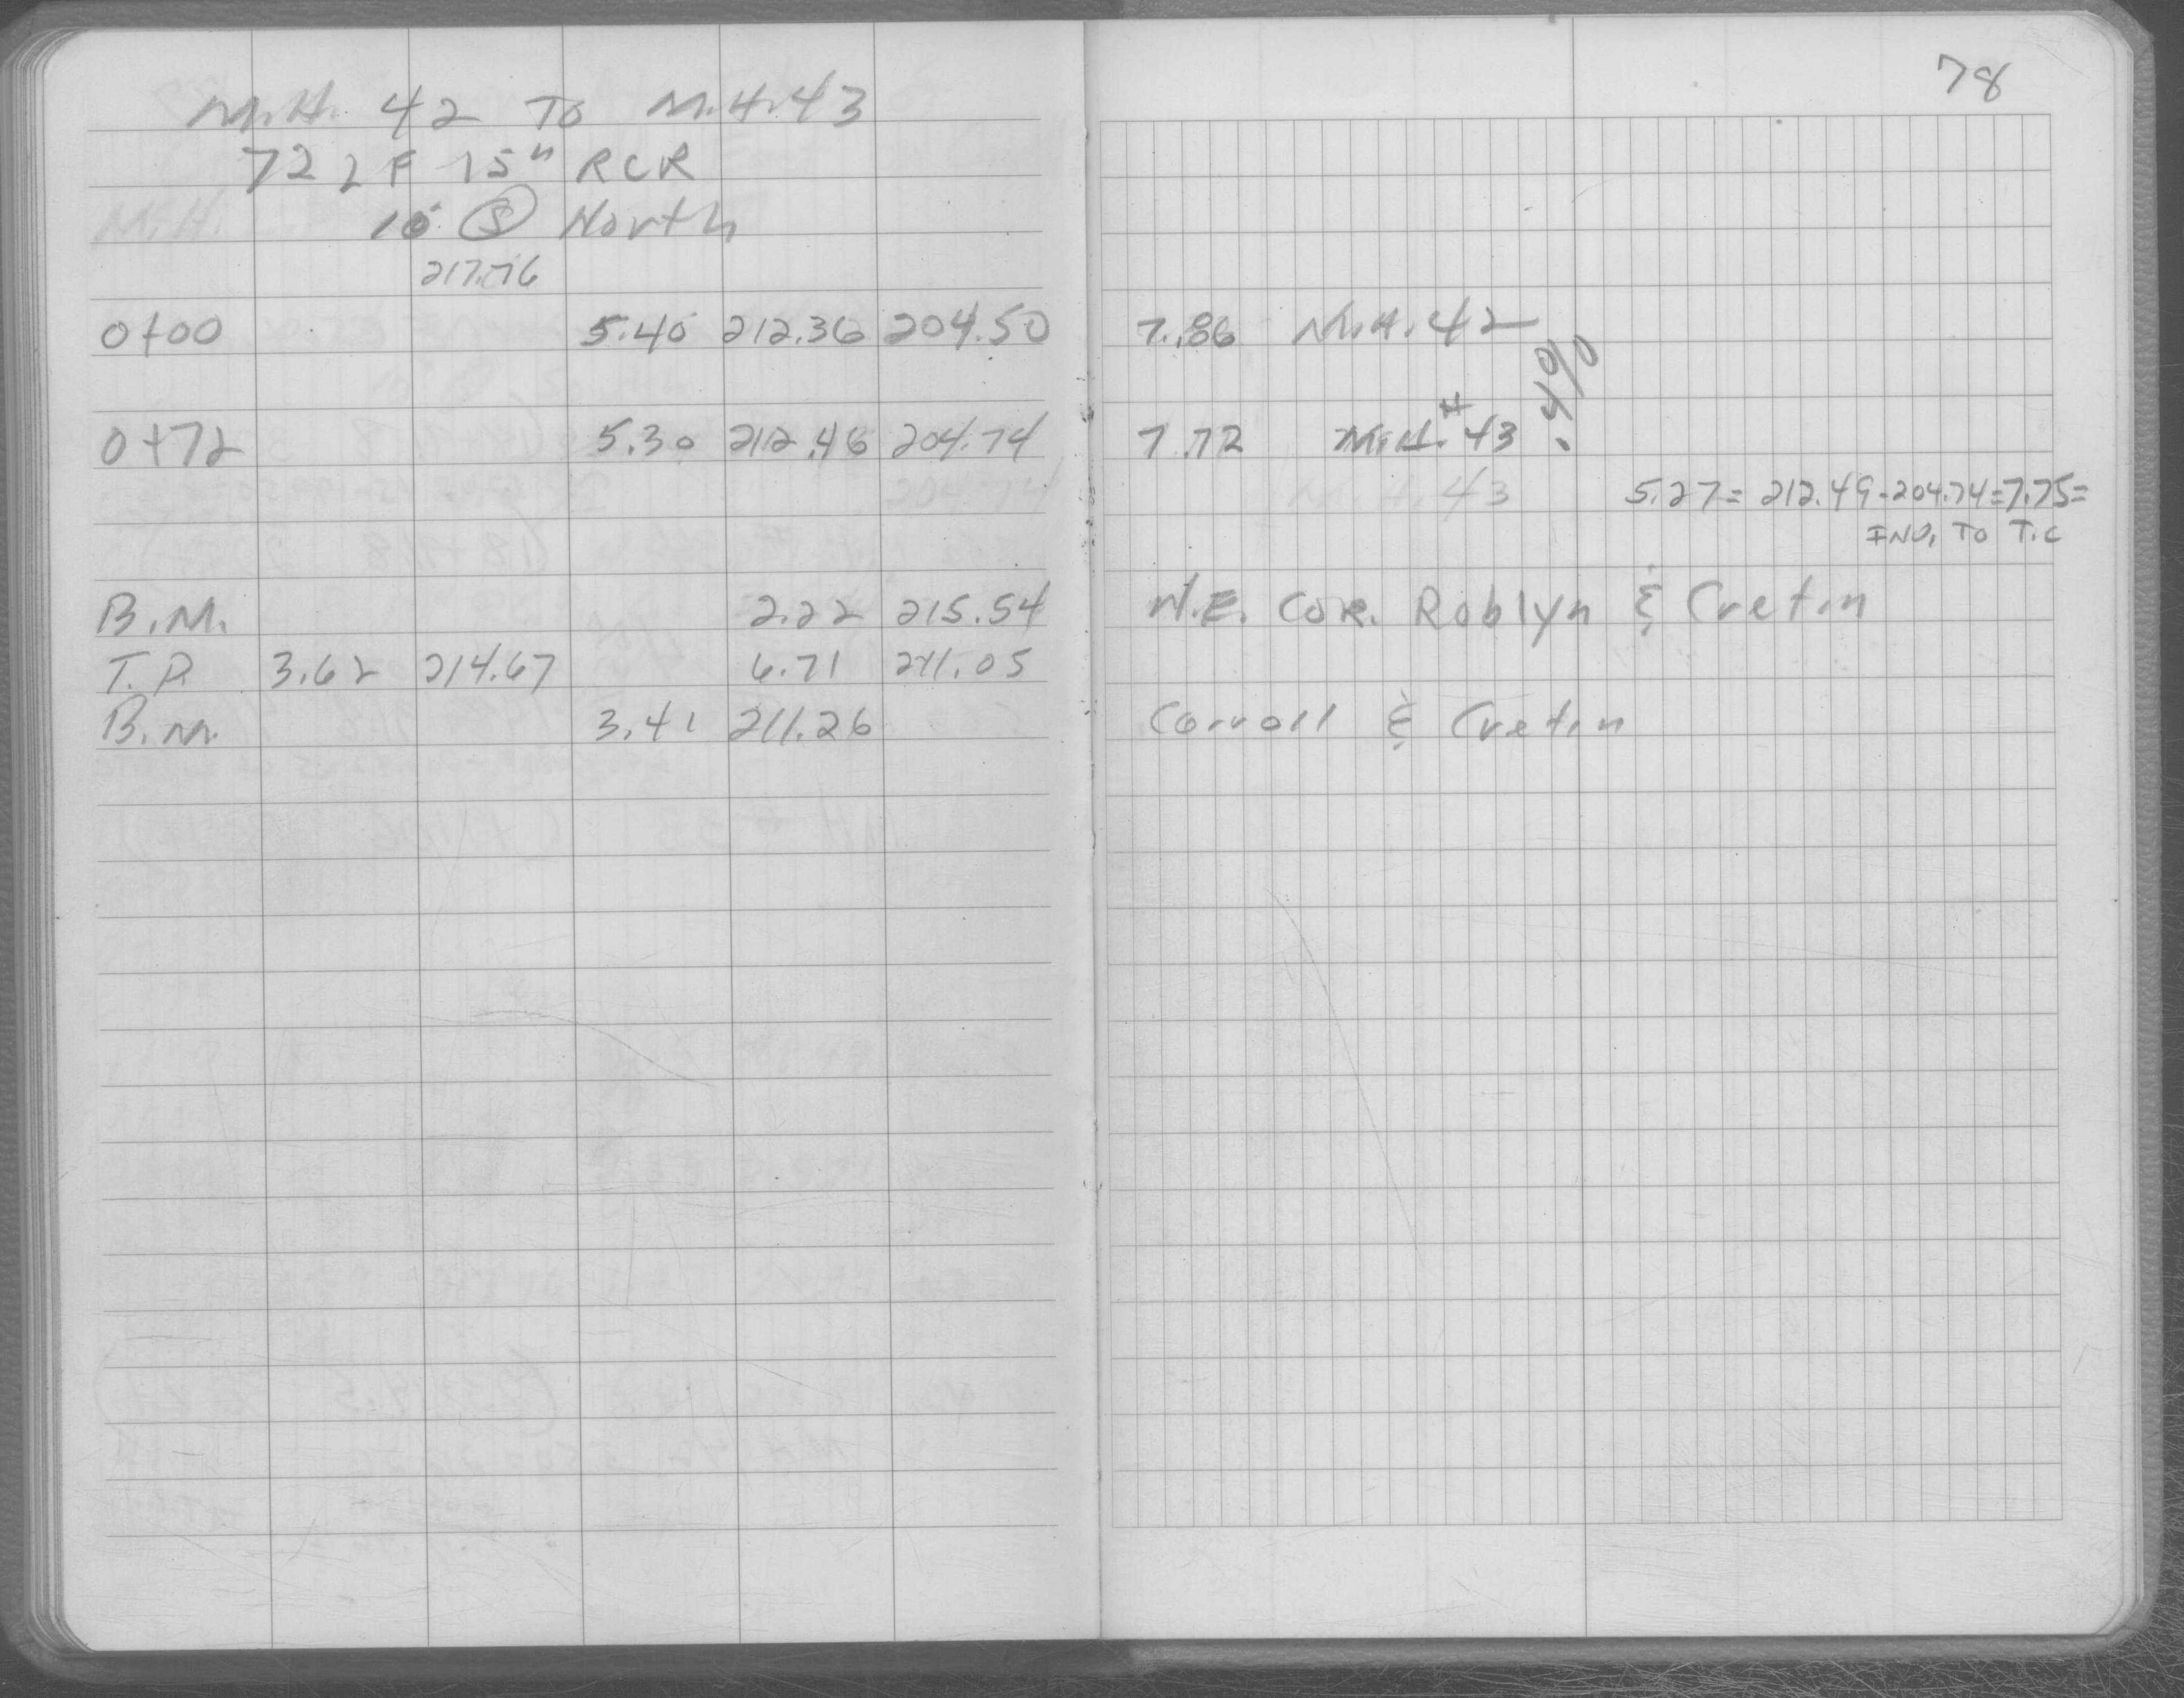 78
M.H. 42 TO M.H. 43
72 LF 15" RCR
10' Ⓢ North
217.76
0+00 5.40 212.36 204.50 7.86 M.H. 42
.4%
0+72 5.30 212.46 204.74 7.72 M.H. # 43
204.74 M.H. 43 5.27 = 212.49 - 204.74 = 7.75 =
INV. TO T.C
B.M. 2.22 215.54 N.E. COR. Roblyn & Cretin
T.P. 3.62 214.67 6.71 211.05
B.M. 3.41 211.26 Carroll & Cretin